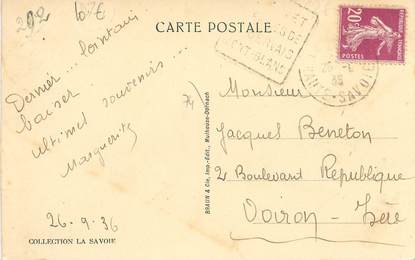 202
10€
CARTE POSTALE
20c
26-9
36
HAUTE-SAVOIE
Dernier... lointain
baiser...
ultimes souvenirs...
Marguerite
26-9.36
COLLECTION LA SAVOIE
BRAUN & Cie, Imp.-Édit., Mulhouse-Dornach
74
Monsieur
Jacques Beneton
2 Boulevard République
Voiron - Isère